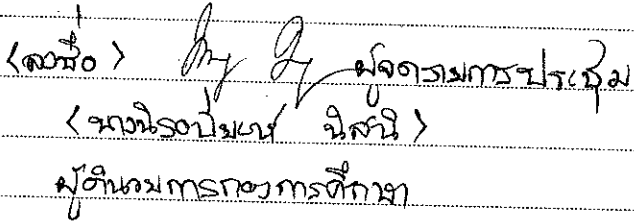 (ลงชื่อ) ผู้จดรายงานการประชุม
(นางนิรอบียะห์ นิสานิ)
ผู้อำนวยการกองการศึกษา